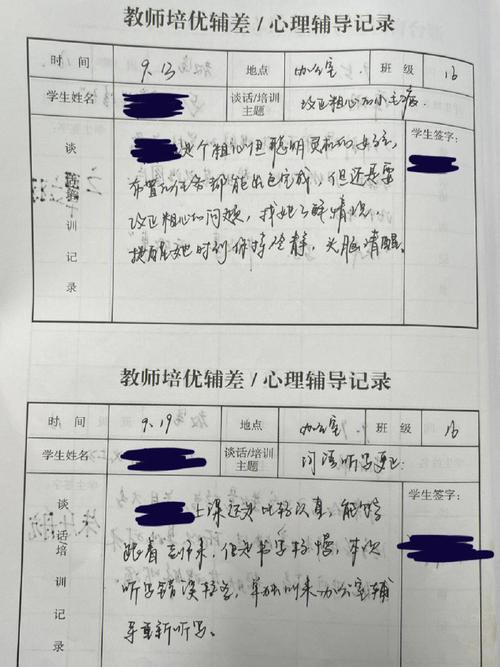 教师培优辅差 / 心理辅导记录
时间 9.13 地点 办公室 班级 16
学生姓名 谈话/培训主题 改正粗心的小毛病.
谈 训 记 录
是个粗心但聪明灵动的女孩,
布置的任务都能出色完成, 但还是要
改正粗心的问题, 找她了解情况,
提醒她时刻保持冷静, 头脑清醒.
学生签字:
教师培优辅差 / 心理辅导记录
时间 9.19 地点 办公室 班级 16
学生姓名 谈话/培训主题 词语听写更正
谈 话 培 训 记 录
上课还是比较认真, 能够
跟着老师来, 但是书写较慢, 本次
听写错误较多, 单独叫来办公室辅
导重新听写.
学生签字: